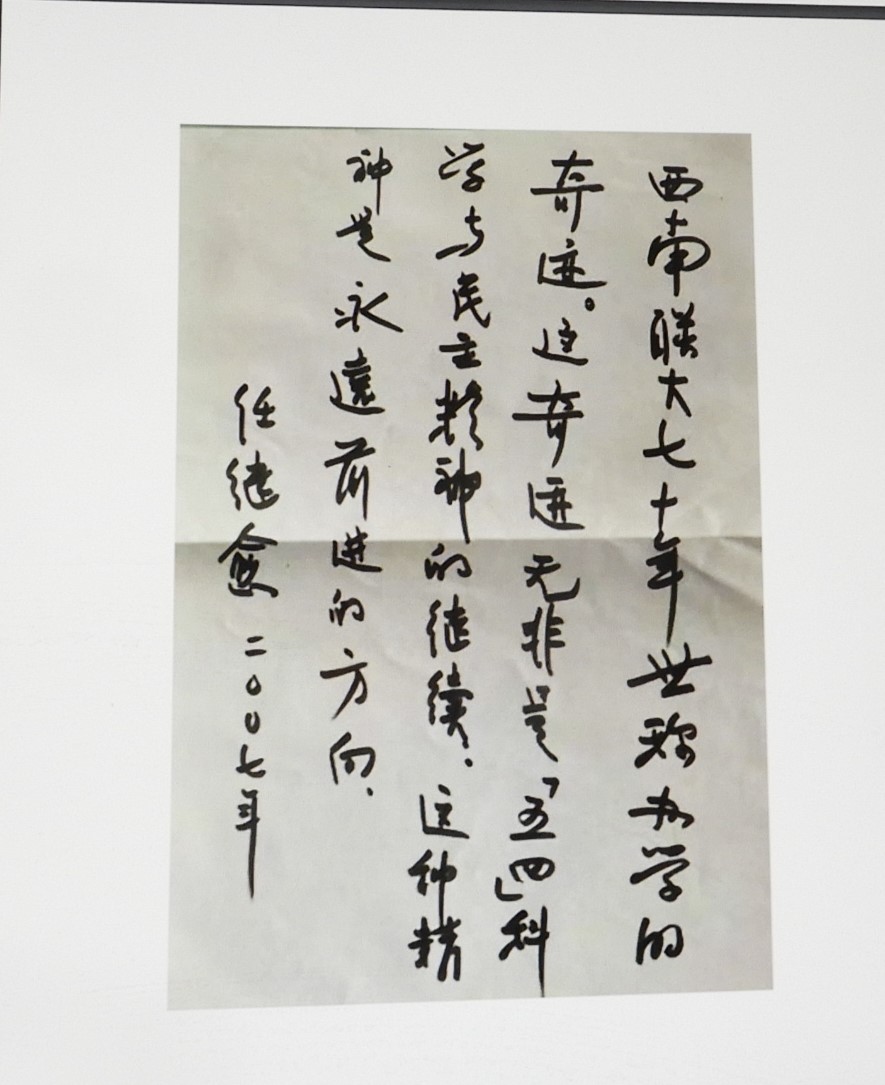 西南联大七十年世称办学的
奇迹。这奇迹无非是「五四」科
学与民主精神的继续.这种精
神是永远前进的方向.
任继愈 二〇〇七年